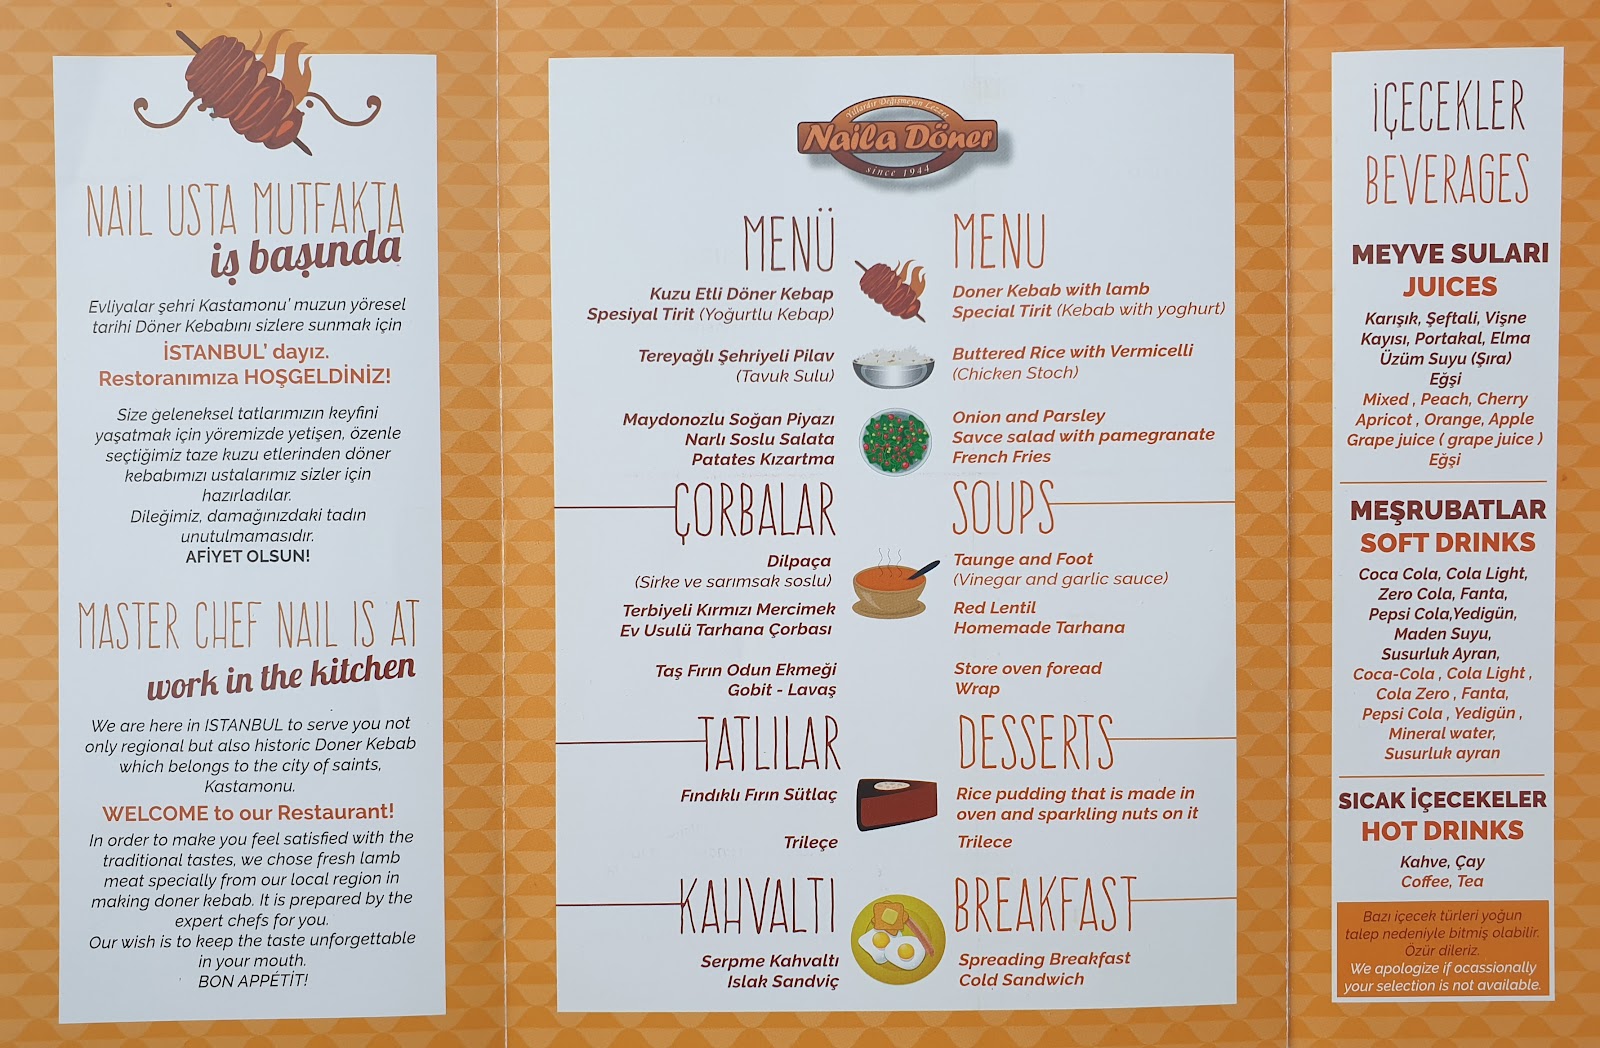 NAİL USTA MUTFAKTA
iş başında
Evliyalar şehri Kastamonu' muzun yöresel
tarihi Döner Kebabını sizlere sunmak için
İSTANBUL' dayız.
Restoranımıza HOŞGELDİNİZ!
Size geleneksel tatlarımızın keyfini
yaşatmak için yöremizde yetişen, özenle
seçtiğimiz taze kuzu etlerinden döner
kebabımızı ustalarımız sizler için
hazırladılar.
Dileğimiz, damağınızdaki tadın
unutulmamasıdır.
AFİYET OLSUN!
MASTER CHEF NAIL IS AT
work in the kitchen
We are here in ISTANBUL to serve you not
only regional but also historic Doner Kebab
which belongs to the city of saints,
Kastamonu.
WELCOME to our Restaurant!
In order to make you feel satisfied with the
traditional tastes, we chose fresh lamb
meat specially from our local region in
making doner kebab. It is prepared by the
expert chefs for you.
Our wish is to keep the taste unforgettable
in your mouth.
BON APPÉTİT!
Yıllardır Değişmeyen Lezzet
Naila Döner
since 1944
MENÜ
Kuzu Etli Döner Kebap
Spesiyal Tirit (Yoğurtlu Kebap)
Tereyağlı Şehriyeli Pilav
(Tavuk Sulu)
Maydonozlu Soğan Piyazı
Narlı Soslu Salata
Patates Kızartma
ÇORBALAR
Dilpaça
(Sirke ve sarımsak soslu)
Terbiyeli Kırmızı Mercimek
Ev Usulü Tarhana Çorbası
Taş Fırın Odun Ekmeği
Gobit - Lavaş
TATLILAR
Fındıklı Fırın Sütlaç
Trileçe
KAHVALTI
Serpme Kahvaltı
Islak Sandviç
MENU
Doner Kebab with lamb
Special Tirit (Kebab with yoghurt)
Buttered Rice with Vermicelli
(Chicken Stoch)
Onion and Parsley
Savce salad with pamegranate
French Fries
SOUPS
Taunge and Foot
(Vinegar and garlic sauce)
Red Lentil
Homemade Tarhana
Store oven foread
Wrap
DESSERTS
Rice pudding that is made in
oven and sparkling nuts on it
Trilece
BREAKFAST
Spreading Breakfast
Cold Sandwich
İÇECEKLER
BEVERAGES
MEYVE SULARI
JUICES
Karışık, Şeftali, Vişne
Kayısı, Portakal, Elma
Üzüm Suyu (Şıra)
Eğşi
Mixed , Peach, Cherry
Apricot , Orange, Apple
Grape juice ( grape juice )
Eğşi
MEŞRUBATLAR
SOFT DRINKS
Coca Cola, Cola Light,
Zero Cola, Fanta,
Pepsi Cola,Yedigün,
Maden Suyu,
Susurluk Ayran,
Coca-Cola , Cola Light ,
Cola Zero , Fanta,
Pepsi Cola , Yedigün ,
Mineral water,
Susurluk ayran
SICAK İÇECEKELER
HOT DRINKS
Kahve, Çay
Coffee, Tea
Bazı içecek türleri yoğun
talep nedeniyle bitmiş olabilir.
Özür dileriz.
We apologize if ocassionally
your selection is not available.